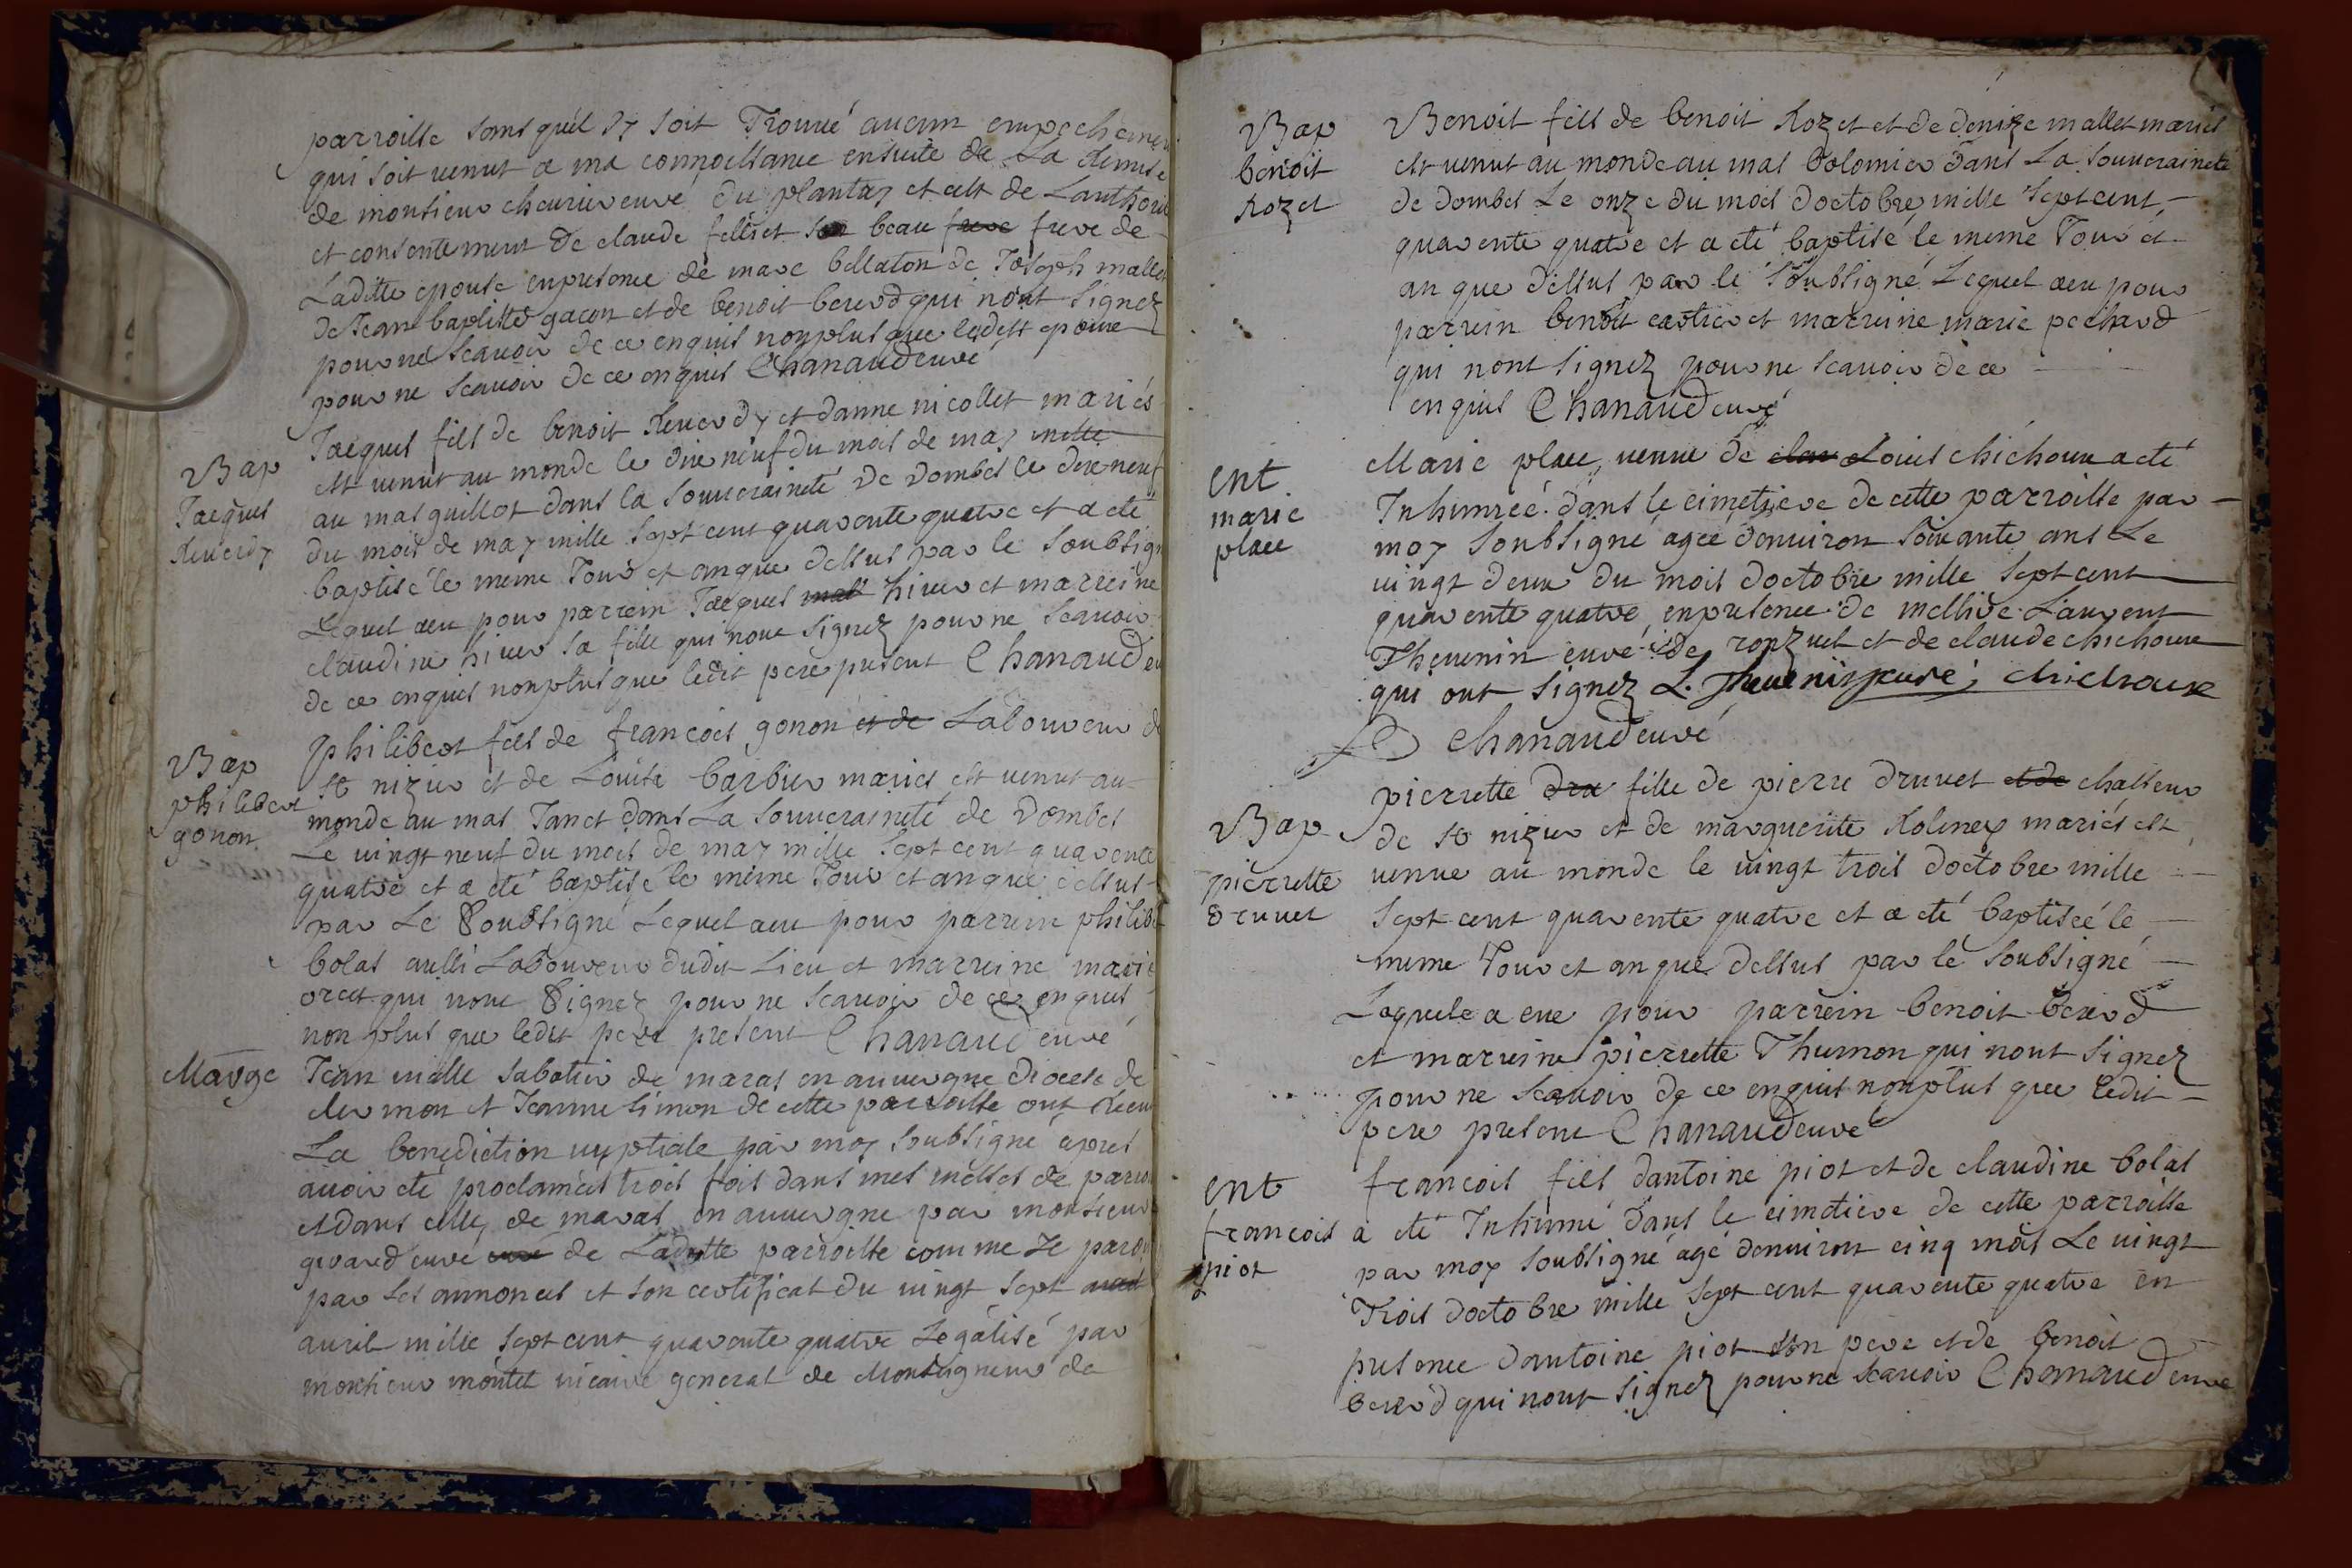 parroisse sans quèl sy soit Trouué aucun empechemen
qui soit uenut a ma connoissance ensuite de La Remise
de monsieur cheurier curé du plantay et est de Lauthori
et consentement de claude fellist son beau frere frere de
Laditte epouse enpresence de marc bellaton de Joseph mallet
de Jean baptiste gacon et de benoit berrod qui nont signez
pour ne scauoir de ce enquis nonplus que lesdist epoux
pour ne scauoir de ce enquis Chanaud curé
Bap
Jacques
Reuerdy
Jacques fils de benoit Reuerdy et danne nicollet mariés
est uenut au monde le dixneuf du mois de may mille
au mas guillot dans la souueraineté de Dombes le dixneuf
du mois de may mille sept cent quarente quatre et a eté
baptisé le meme Jour et an que dessus par le soubsign
Lequel aeu pour parrein Jacques mall hiuer et marreine
claudine hiuer sa fille qui nont signez pour ne scauoir
de ce enquis nonplus que ledit pere present Chanaud cu
Bap
philibert
gonon
philibert fils de francois gonon et de Laboureur de
st nizier et de Louise barbier mariés est uenut au
monde au mas Janet dans La souueraineté de Dombes
Le uingt neuf du mois de may mille sept cent quarente
quatre et a eté baptisé le meme Jour et an que dessus
par Le Soubsigné Lequel aeu pour parrein philib
bolas aussi Laboureur dudit Lieu et marreine marie
orcet qui nont Signez pour ne scauoir de ce enquis
non plus que ledit pere present Chanaud curé
Marge
Jean mille sabotier de maras en auuergne diocese de
clermon et Jeanne simon de cette parroisse ont Receu
La benediction nyptiale par moy soubsigné apres
auoir eté proclamés trois fois dans mes messes de parroi
et dans celles de maras en auuergne par monsieur
girard curé curé de Laditte parroisse comme Je paroi
par ses annonces et son certificat du uingt sept auril
auril mille sept cent quarente quatre Legalisé par
monsieur montet uicaire general de Monseigneur de
Bap
benoit
Rozet
Benoit fils de benoit Rozet et de denize mallet mariés
est uenut au monde au mas Colomier dans La souueraineté
de dombes Le onze du mois doctobre mille sept cent
quarente quatre et a eté baptisé le meme Jour et
an que dessus par le soubsigné Lequel aeu pour
parrein benoit cartier et marreine marie pechard
qui nont signez pour ne scauoir de ce
enquis Chanaud curé
ent
marie
place
Marie place, ueuue de clau Louis chichoux a eté
Inhumeé dans le cimetiere de cette parroisse par
moy soubsigné ageé denuiron soixante ans Le
uingt deux du mois doctobre mille sept cent
quarente quatre enpresence de messire Laurent
Theuenin curé de ronzuel et de claude chichoux
qui ont signez L. Theuenin curé, chichoux
Chanaud curé
Bap
pierrette
druuet
pierrette dru fille de pierre druuet et de chasseur
de st nizier et de marguerite Roliney mariés est
uenue au monde le uingt trois doctobre mille
sept cent quarente quatre et a eté baptiseé le
meme Jour et an que dessus par le soubsigné
Laquele a eue pour parrein benoit berrod
et marreine pierrette Thumon qui nont signez
pour ne scauoir de ce enquis nonplus que ledit
pere present Chanaud curé
ent
francois
piot
francois fils dantoine piot et de claudine bolas
a eté Inhumé dans le cimetiere de cette parroisse
par moy soubsigné agé denuiron cinq mois Le uingt
Trois doctobre mille sept cent quarente quatre en
presence dantoine piot son pere et de benoit
berrod qui nont signez pour ne scauoir Chanaud curé